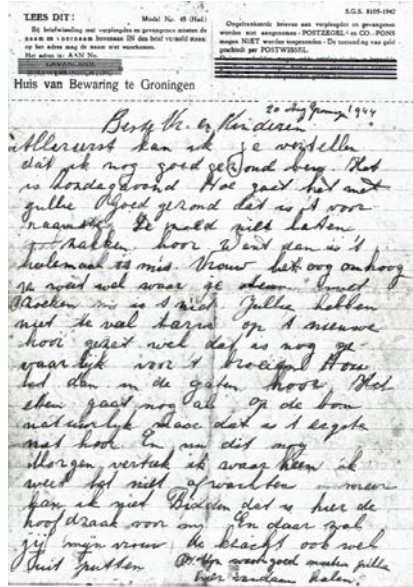 LEES DIT!
Model No. 45 (Hnd.)
S.G.S. 8105-1942
Bij briefwisseling met verpleegden en gevangenen moeten de
naam en voornaam bovenaan IN den brief vermeld staan;
op het adres mag de naam niet voorkomen.
Het adres is: AAN No.
GEVANGENIS
Ongefrankeerde brieven aan verpleegden en gevangenen
worden niet aangenomen - POSTZEGELS en COUPONS
mogen NIET worden toegezonden - De toezending van geld
geschiedt per POSTWISSEL.
Huis van Bewaring te Groningen
20 Aug 1944
Beste Vr. en Kinderen
Allereerst kan ik je vertellen
dat ik nog goed gezond ben. Het
is Zondagavond Hoe gaat het met
jullie Goed gezond dat is 't voor
naamste De moed niet laten
zakken hoor Want dan is 't
helemaal is mis Vrouw het oog omhoog
je weet wel waar je steun moet
zoeken Jullie hebben
niet te veel op 't nieuwe
hoor gezet wel dat is nog ge
vaarlijk voor 't Hou
het dan in de gaten hoor Het
eten gaat nog al op de bon
natuurlijk maar dat is 't ergste
niet hoor En nu dit nog
Morgen vertrek ik waar heen ik
weet het niet afwachten meer
kan ik niet Bidden dat is hier de
hoofdzaak voor mij En daar zal
jij mijn vrouw de kracht ook wel
uit putten
goed moeten jullie
hier vandaan halen